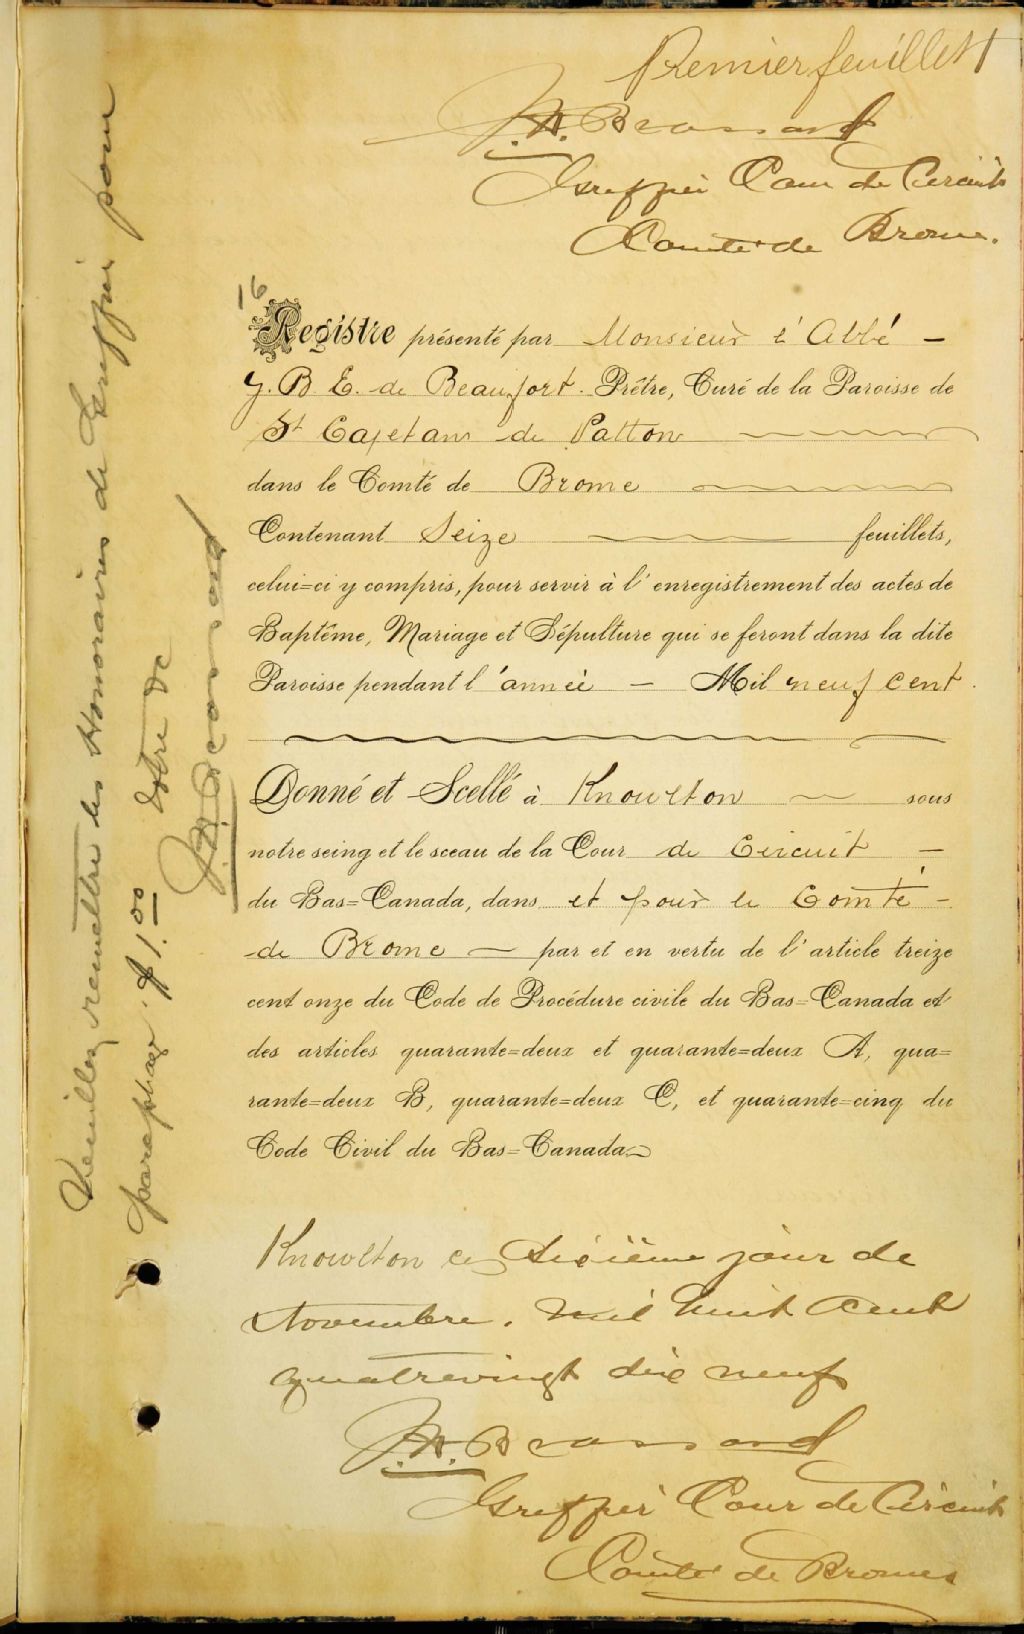 Premier feuillet
J.A. Brassard
Greffier Cour de Circuit
Comté de Brome.
16
Registre présenté par Monsieur l'Abbé –
J. B. E. de Beaufort. Prêtre, Curé de la Paroisse de
St Cajetan de Patton
dans le Comté de Brome
Contenant Seize feuillets,
celui=ci y compris, pour servir à l'enregistrement des actes de
Baptême, Mariage et Sépulture qui se feront dans la dite
Paroisse pendant l'année – Mil neuf cent.
Donné et Scellé à Knowlton sous
notre seing et le sceau de la Cour de Circuit –
du Bas=Canada, dans et pour le Comté –
de Brome — par et en vertu de l'article treize
cent onze du Code de Procédure civile du Bas=Canada et
des articles quarante=deux et quarante=deux A, qua=
rante=deux B, quarante=deux C, et quarante=cinq du
Code Civil du Bas=Canada.
Knowlton ce Sixième jour de
Novembre. Mil huit cent
quatrevingt dix neuf
J.A. Brassard
Greffier Cour de Circuit
Comté de Brome
Veuillez remettre les Honoraires de Greffier pour
parapher $1.00 Votre Dc
J.A. Brassard